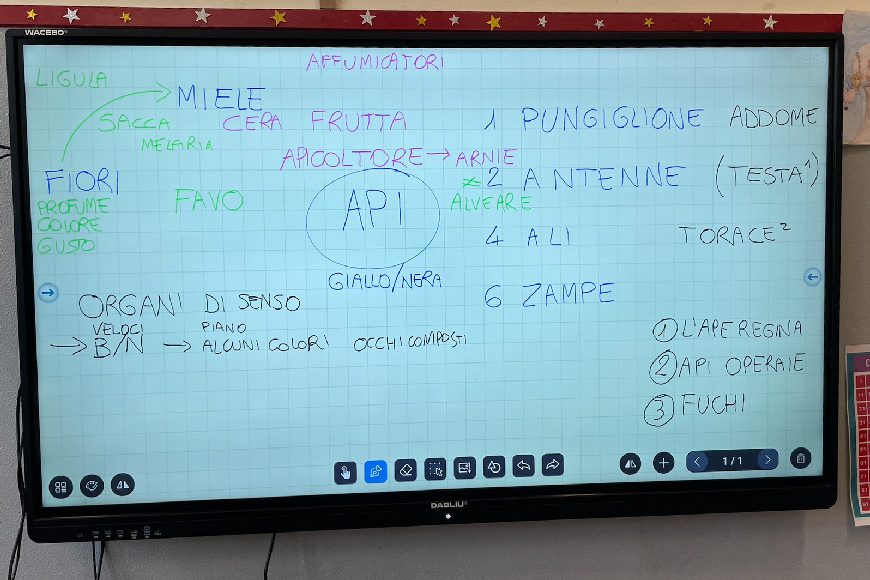 WACEBO
AFFUMICATORI
LIGULA
MIELE
SACCA CERA FRUTTA
MELARIA
1 PUNGIGLIONE ADDOME
APICOLTORE → ARNIE
≠
FIORI
FAVO
API
ALVEARE
2 ANTENNE (TESTA¹)
PROFUME
COLORE
GUSTO
4 ALI TORACE²
GIALLO/NERA
6 ZAMPE
ORGANI DI SENSO
VELOCI PIANO
→ B/N → ALCUNI COLORI OCCHI COMPOSTI
1 L'APE REGINA
2 API OPERAIE
3 FUCHI
1/1
DABLIU